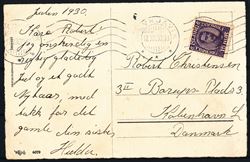 Julen 1930.
Kære Robert
jeg ønsker dig en
rigtig glædelig
Jul og et godt
Nytaar, med
tak for det
gamle din søster
Hulda.
Robert Christensen
3 Barups Plads 3
København
Danmark
4079